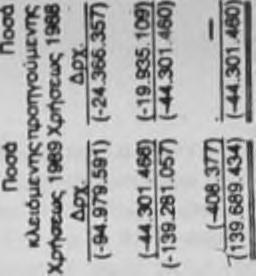 Ποσά Ποσά
κλειόμενης προηγούμενης
Χρήσεως 1989 Χρήσεως 1988
Δρχ. Δρχ.
(-94.979.591) (-24.366.357)
(-44.301.466) (-19.935.109)
(-139.281.057) (-44.301.460)
(-408.377) —
(139.689.434) (-44.301.460)